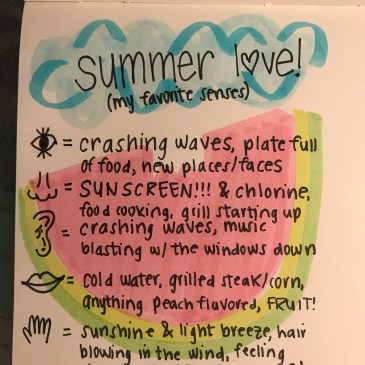 summer love!
(my favorite senses)
= crashing waves, plate full
of food, new places/faces
= SUNSCREEN!!! & chlorine,
food cooking, grill starting up
= crashing waves, music
blasting w/ the windows down
= cold water, grilled steak/corn,
anything peach flavored, FRUIT!
= sunshine & light breeze, hair
blowing in the wind, feeling